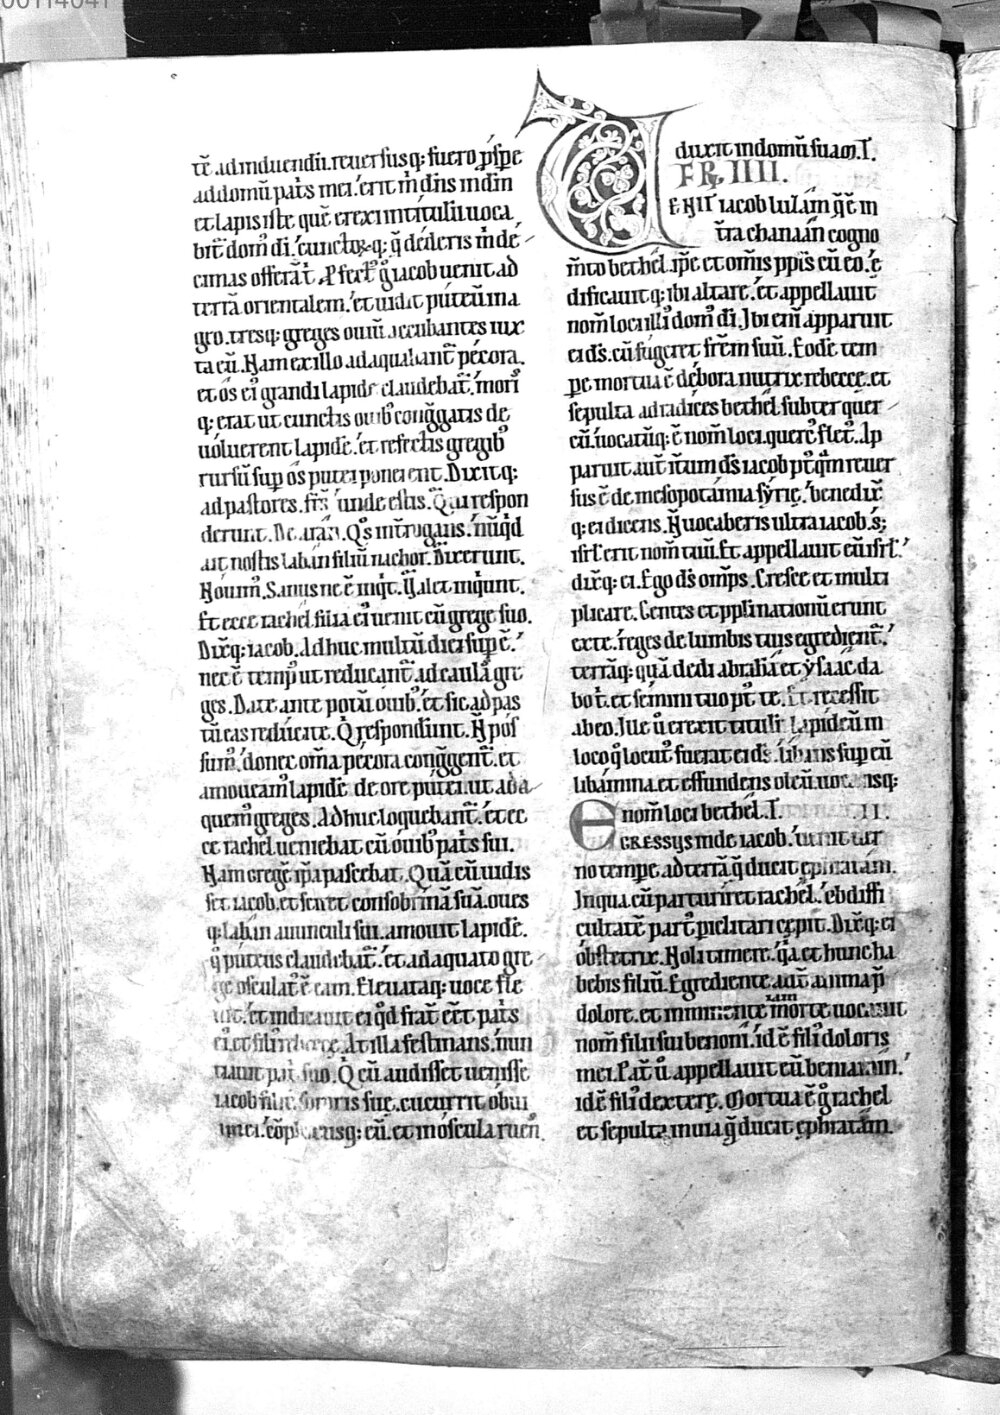 00114041
tē. ad induendū. reuersusq; fuero ꝓspe
ad domū pat̄s mei. erit m̄ dn̄s in dm̄
et lapis iste quē erexi in titulū uoca
bit̄ dom᷒ di. cunctoꝝq; q̄ dederis m̄ de
cimas offerā t̄. Pfect᷒ g̊ iacob uenit ad
terrā orientalem. et uidit puteū in a
gro. tresq; greges ouiū accubantes iux
ta eū. Nam ex illo adaquabant̄ pecora.
et os ei᷒ grandi lapide claudebat̄. mori
q; erat ut cunctis ouib᷒ congg̃atis de
uoluerent lapidē. et refectis gregib᷒
rursū sup os putei ponerent. Dixitq;
ad pastores. frs̄ unde estis. Qui respon
derunt. De aran. Q᷒s int̄rogans. nūq̇d
ait nostis laban filiū nachor. Dixerunt.
Nouim᷒. Sanus ne ē inq̇t. Ualet inq̇unt.
Et ecce rachel filia ei᷒ uenit cū grege suo.
Dix̄q; iacob. Adhuc multū diei sup ē.
nec ē temp᷒ ut reducant̄ ad caulā gre
ges. Date ante potū ouib᷒. et sic ad pas
tū eas reducite. Q̇ respondunt. N̄ pos
sum᷒. donec om̄a pecora congg̃gent̄. et
amoueam᷒ lapidē de ore putei. ut ada
quem᷒ greges. Adhuc loquebant̄. et ec
ce rachel ueniebat cū ouib᷒ pat̄s sui.
Nam gregē ip̄a pascebat. Quā cū uidis
set iacob. et sciret consobrinā suā. oues
q; laban auunculi sui. amouit lapidē.
q̇ puteus claudebat̄. et adaquato gre
ge osculat᷒ ē eam. Eleuataq; uoce fle
uit. et indicauit ei q̇d frat̄ eēt pat̄s
ei᷒ et fili᷒ rebecce. At illa festinans. nun
tiauit pat̄ suo. Q̇ cū audisset uenisse
iacob filiū sororis suę. cucurrit obui
ā ei. cōplexusq; eū. et in oscula ruen᷒.
Aduxit in domū suam. I.
FR̄. IIII.
UENIT iacob luzam q̄ ē in
t̄ra chanaan cogno
m̄to bethel. ip̄e et om̄is pp̄is cū eo. ę
dificauitq; ibi altare. et appellauit
nom̄ loci illi᷒ dom᷒ di. Ibi enī apparuit
ei ds̄. cū fugeret fr̄em suū. Eodē tem
pe mortua ē debora nutrix rebecce. et
sepulta ad radices bethel subter quer
cū. uocatūq; ē nom̄ loci. querc᷒ flet᷒. Ap
paruit aut̄ itum ds̄ iacob pt̄q̄m reuer
sus ē de mesopotamia syrię. benedix̄
q; ei dicens. N̄ uocaberis ultra iacob. s;
isrl̄ erit nom̄ tuū. Et appellauit eū isrl̄.
dix̄q; ei. Ego ds̄ omp̄s. Cresce et multi
plicare. Gentes et pp̄li nationū erunt
ex te. reges de lumbis tuis egredient̄.
terrāq; quā dedi abrahā et ysaac da
bo t̄. et semini tuo pt̄ te. Et recessit
ab eo. Ille ū erexit titulū lapideū in
loco q̊ locut᷒ fuerat ei ds̄. libans sup eū
libamina. et effundens oleū. uocansq;
nom̄ loci bethel. I. II.
EGRESSUS inde iacob. uenit uer
no tempe. ad terrā q̄ ducit ephratam.
In qua cū parturiret rachel. ob diffi
cultatē part᷒. piclitari cępit. Dix̄q; ei
obstetrix. Noli timere. q̇a et hunc ha
bebis filiū. Egrediente aut̄ anima p̄
dolore. et imminente iam morte uocauit
nom̄ filii sui benoni. id ē fili᷒ doloris
mei. Pat̄ ů appellauit eū beniamin.
id ē fili᷒ dexterę. Mortua ē g̊ rachel
et sepulta in uia q̄ ducit ephratam.